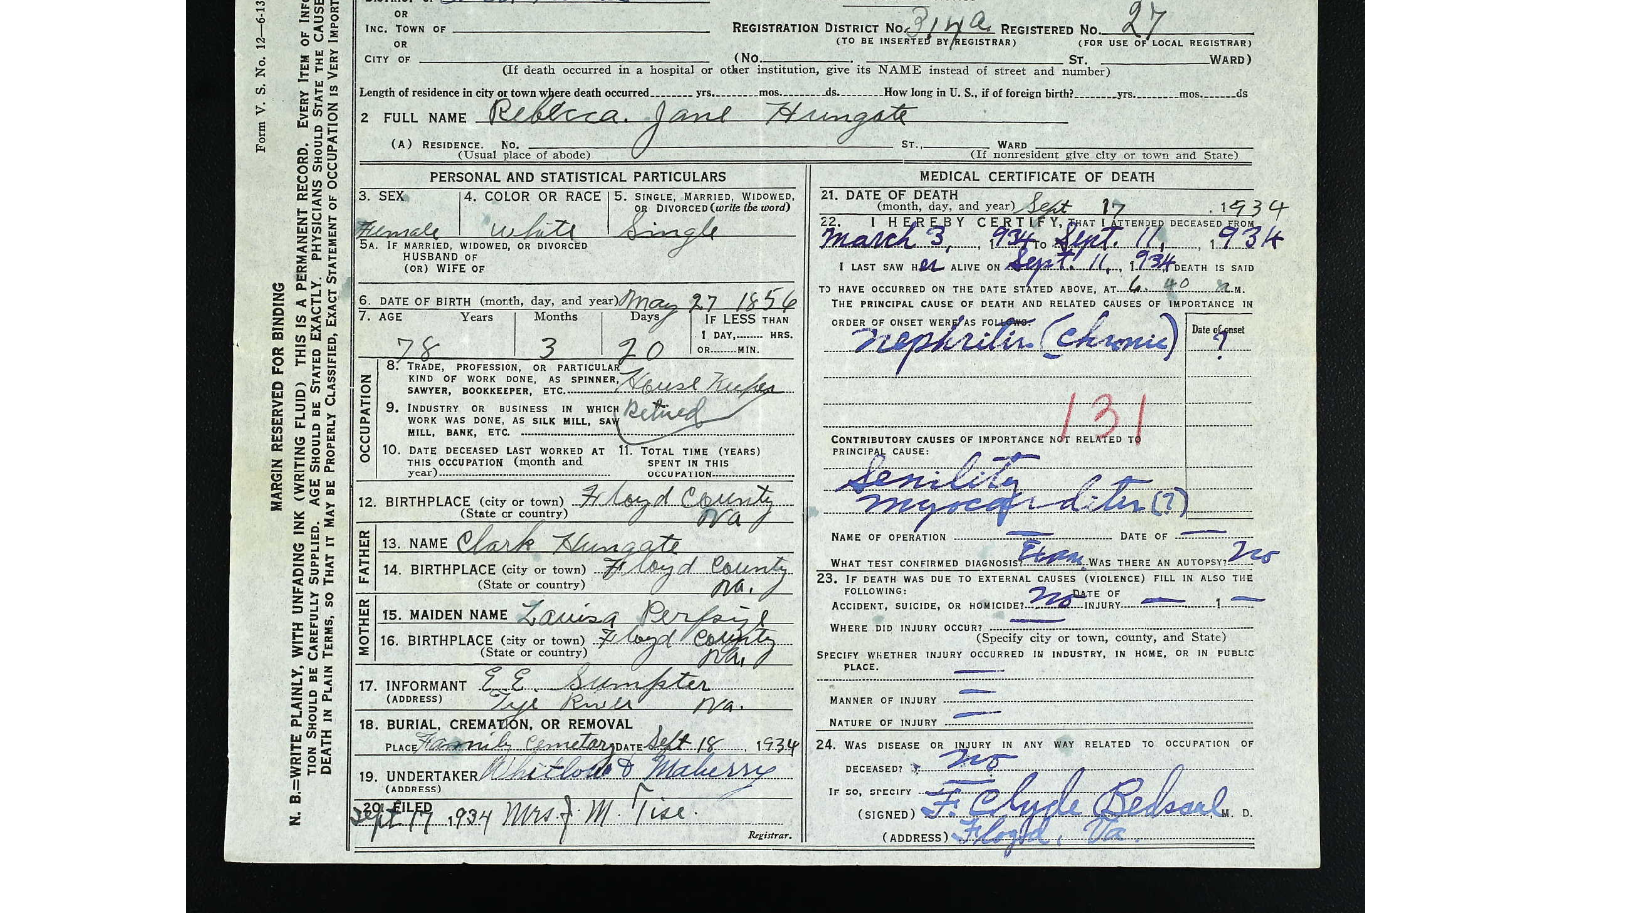 OR
INC. TOWN OF
REGISTRATION DISTRICT No. 314a REGISTERED No. 27
(TO BE INSERTED BY REGISTRAR) (FOR USE OF LOCAL REGISTRAR)
OR
CITY OF (No. ST. WARD)
(If death occurred in a hospital or other institution, give its NAME instead of street and number)
Length of residence in city or town where death occurred yrs. mos. ds. How long in U. S., if of foreign birth? yrs. mos. ds
2 FULL NAME Rebecca. Jane Hungate
(A) RESIDENCE. No. ST., WARD
(Usual place of abode) (If nonresident give city or town and State)
Form V. S. No. 12—6-13
MARGIN RESERVED FOR BINDING
N. B.=WRITE PLAINLY, WITH UNFADING INK (WRITING FLUID) THIS IS A PERMANENT RECORD. EVERY ITEM OF
TION SHOULD BE CAREFULLY SUPPLIED. AGE SHOULD BE STATED EXACTLY. PHYSICIANS SHOULD STATE THE CAUSE
DEATH IN PLAIN TERMS, SO THAT IT MAY BE PROPERLY CLASSIFIED, EXACT STATEMENT OF OCCUPATION IS VERY
PERSONAL AND STATISTICAL PARTICULARS
3. SEX 4. COLOR OR RACE 5. SINGLE, MARRIED, WIDOWED,
OR DIVORCED (write the word)
Female white Single
5A. IF MARRIED, WIDOWED, OR DIVORCED
HUSBAND OF
(OR) WIFE OF
6. DATE OF BIRTH (month, day, and year) May 27 1856
7. AGE Years Months Days IF LESS THAN
1 DAY, HRS.
78 3 20 OR MIN.
OCCUPATION
8. TRADE, PROFESSION, OR PARTICULAR
KIND OF WORK DONE, AS SPINNER, House Keeper
SAWYER, BOOKKEEPER, ETC.
9. INDUSTRY OR BUSINESS IN WHICH Retired
WORK WAS DONE, AS SILK MILL, SAW
MILL, BANK, ETC.
10. DATE DECEASED LAST WORKED AT 11. TOTAL TIME (YEARS)
THIS OCCUPATION (month and SPENT IN THIS
year) OCCUPATION
12. BIRTHPLACE (city or town) Floyd County
(State or country) Va
FATHER
13. NAME Clark Hungate
14. BIRTHPLACE (city or town) Floyd County
(State or country) Va.
MOTHER
15. MAIDEN NAME Lauisa
16. BIRTHPLACE (city or town) Floyd County
(State or country) Va.
17. INFORMANT E E. Sumpter
(ADDRESS) Tye River Va.
18. BURIAL, CREMATION, OR REMOVAL
PLACE Cemetary DATE Sept 18, 1934
19. UNDERTAKER Whitlow & Maberry
(ADDRESS)
20. FILED
Sept 17, 1934 Mrs. J. M. Tise.
Registrar.
MEDICAL CERTIFICATE OF DEATH
21. DATE OF DEATH
(month, day, and year) Sept 17, 1934
22. I HEREBY CERTIFY, THAT I ATTENDED DECEASED FROM
March 3, 1934 TO Sept. 11, 1934
I LAST SAW HER ALIVE ON Sept. 11, 1934 DEATH IS SAID
TO HAVE OCCURRED ON THE DATE STATED ABOVE, AT 6 40 a M.
THE PRINCIPAL CAUSE OF DEATH AND RELATED CAUSES OF IMPORTANCE IN
ORDER OF ONSET WERE AS FOLLOWS: Date of onset
Nephritis (Chronic) ?
131
CONTRIBUTORY CAUSES OF IMPORTANCE NOT RELATED TO
PRINCIPAL CAUSE:
Senility
Myocarditis (?)
NAME OF OPERATION — DATE OF —
WHAT TEST CONFIRMED DIAGNOSIS? Exam. WAS THERE AN AUTOPSY? No
23. IF DEATH WAS DUE TO EXTERNAL CAUSES (VIOLENCE) FILL IN ALSO THE
FOLLOWING: DATE OF
ACCIDENT, SUICIDE, OR HOMICIDE? No INJURY — 1 —
WHERE DID INJURY OCCUR? —
(Specify city or town, county, and State)
SPECIFY WHETHER INJURY OCCURRED IN INDUSTRY, IN HOME, OR IN PUBLIC
PLACE. —
MANNER OF INJURY —
NATURE OF INJURY —
24. WAS DISEASE OR INJURY IN ANY WAY RELATED TO OCCUPATION OF
DECEASED? No
IF SO, SPECIFY —
(SIGNED) F. Clyde Bedsaul M. D.
(ADDRESS) Floyd, Va.